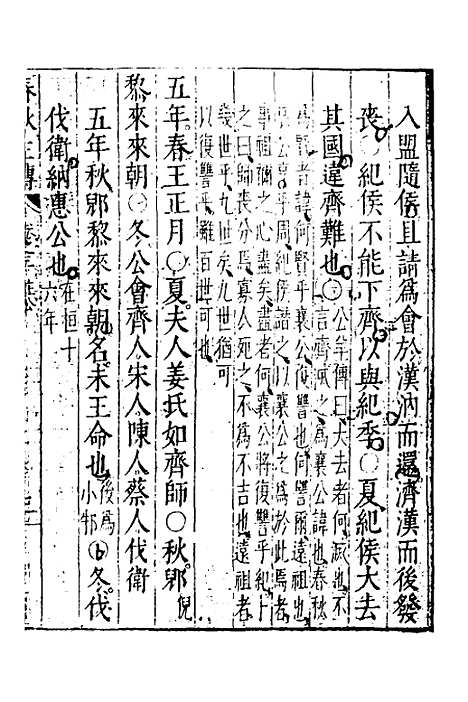 入盟隨侯且請爲會於漢汭而還濟漢而後發
喪○紀侯不能下齊以與紀季○夏紀侯大去
其國違齊難也○公羊傳曰大去者何滅也不
言齊滅之爲襄公諱也春秋
爲賢者諱何賢乎襄公復讐爾遠祖也
哀公亨乎周紀侯譖之以襄公之爲於此焉者
事祖禰之心盡矣盡者何襄公將復讐乎紀卜
之曰師喪分焉寡人死之不爲不吉也遠祖者
幾世乎九世矣九世猶可
以復讐乎雖百世可也
五年春王正月○夏夫人姜氏如齊師○秋郳倪
黎來來朝○冬公會齊人宋人陳人蔡人伐衛
五年秋郳黎來來朝名未王命也後爲小邾○冬伐
伐衛納惠公也在桓十六年